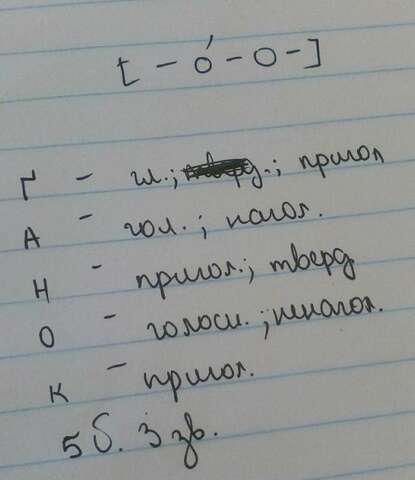 [ – ó – о – ]
Ґ – гл.; ; пригол
А – гол.; нагол.
Н – пригол.; тверд
О – голосн.; ненагол.
К – пригол.
5 б. 3 зв.